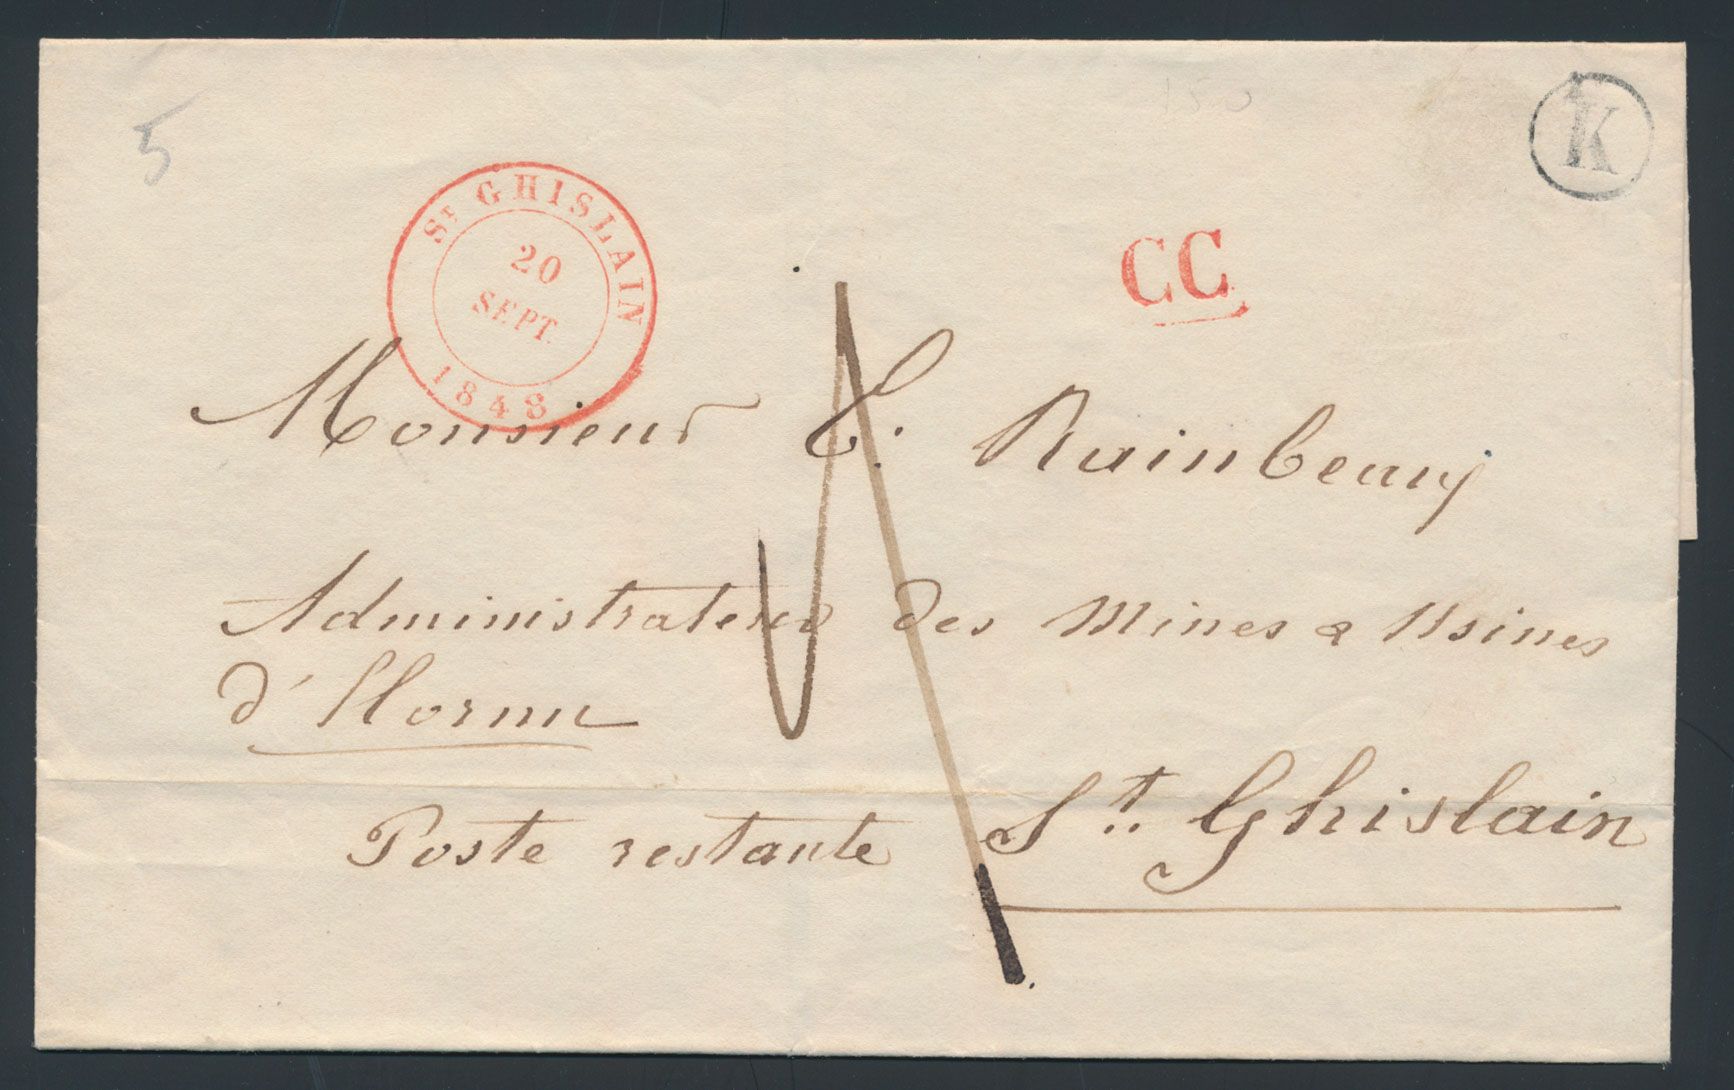 5
150
K
St GHISLAIN
20
SEPT.
1848
CC
Monsieur E. Rainbeaux
Administrateur des Mines & Usines
d'Hornu
Poste restante St. Ghislain